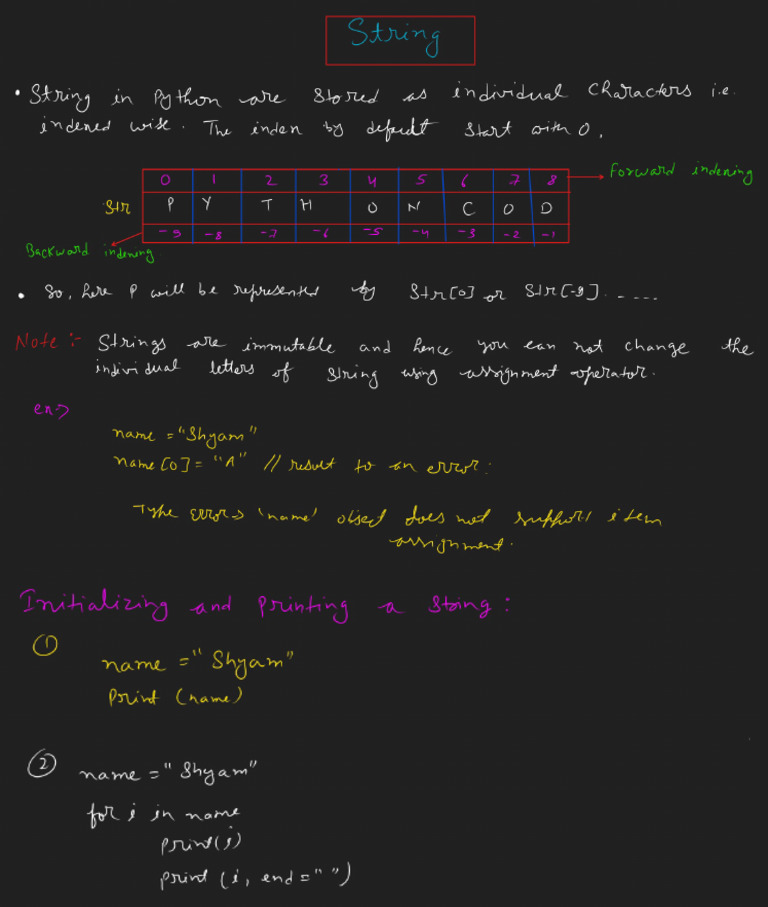 String
• String in Python are stored as individual characters i.e.
indexed wise. The index by default start with 0.
0 1 2 3 4 5 6 7 8 → Forward indexing
Str P Y T H O N C O D
-9 -8 -7 -6 -5 -4 -3 -2 -1
Backward indexing
• So, here P will be represented by Str[0] or Str[-9]. - ....
Note :- Strings are immutable and hence you can not change the
individual letters of string using assignment operator.
ex=>
name = "Shyam"
name[0] = "A" // result to an error:
Type Error => 'name' object does not support item
assignment.
Initializing and Printing a String :
①
name = "Shyam"
Print (name)
②
name = "Shyam"
for i in name
print(i)
print (i, end = " ")